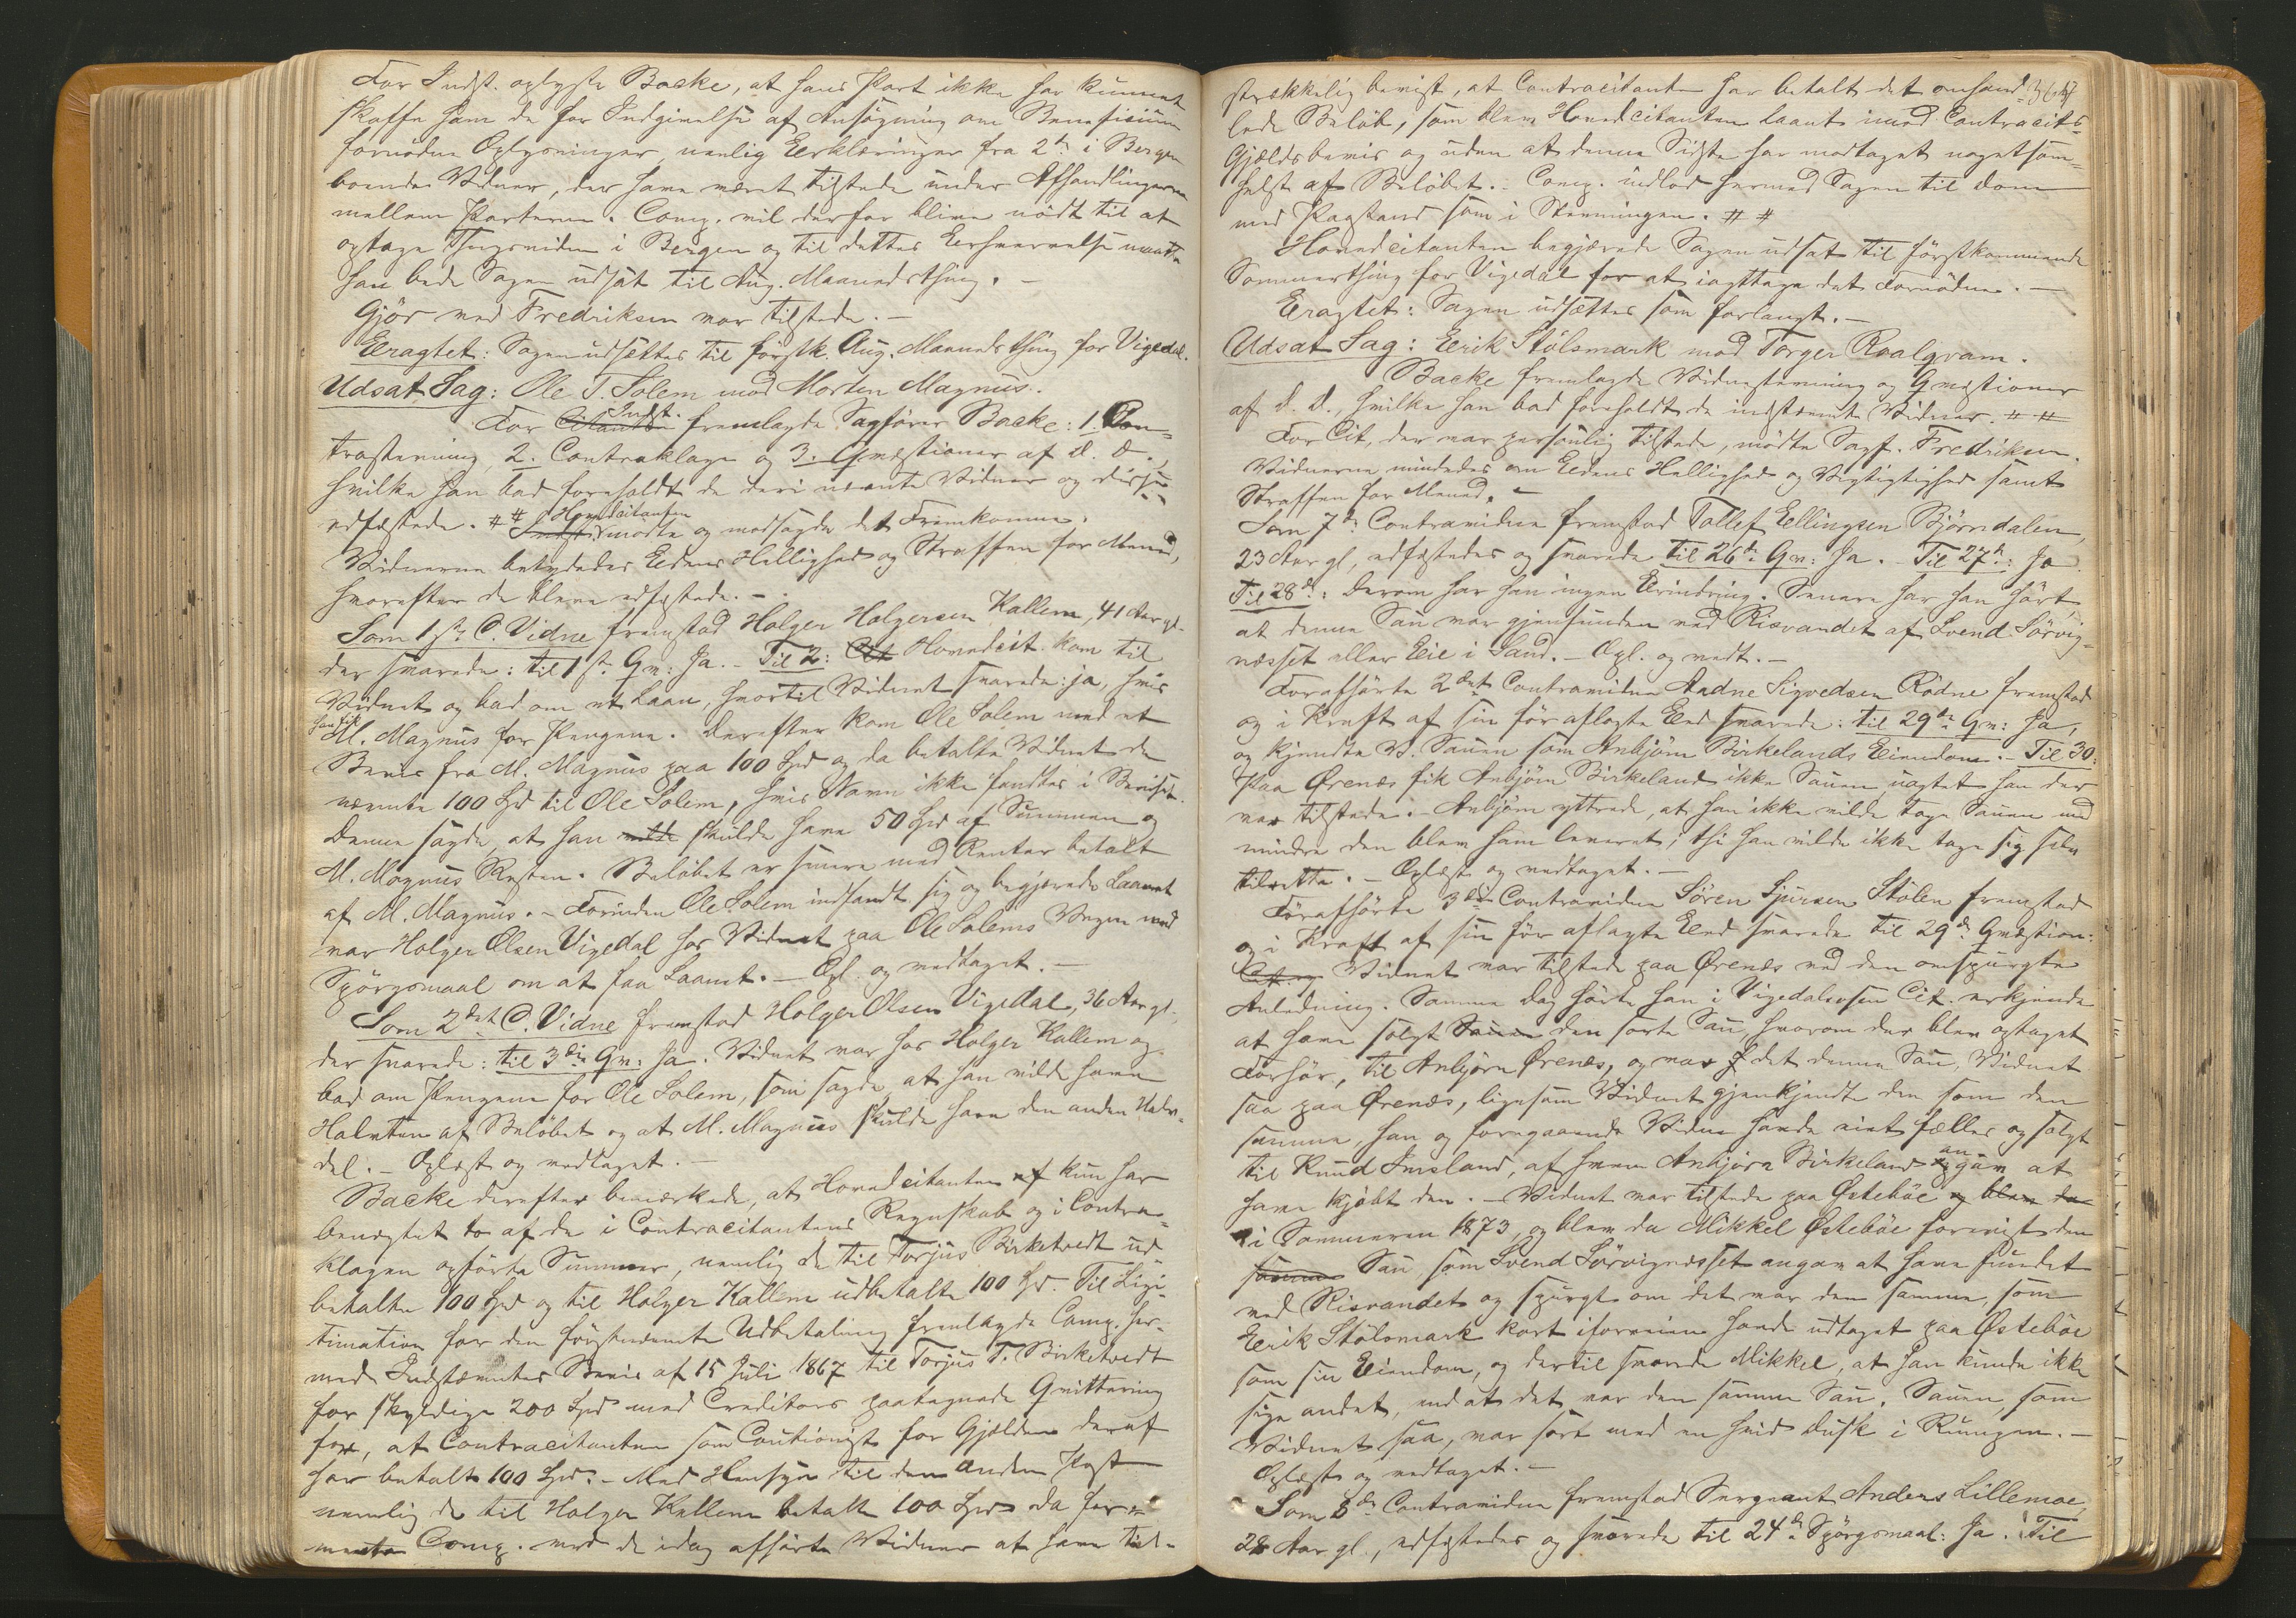 For Indst. oplyste Backe, at hans Part ikke har kunnet
skaffe ham de for Indgivelse af Ansögning om Beneficium
fornödne Oplysninger, nemlig Erklæringer fra 2de i Bergen
boende Vidner, der have været tilstede under Afhandlingerne
mellem Parterne. Comp. vil derfor blive nödt til at
optage Thingsvidne i Bergen og til dettes Erhvervelse maatte
han bede Sagen udsat til Aug. Maanedsthing. –
Gjör med Fredriksen var tilstede. –
Eragtet: Sagen udsættes til förstk. Aug. Maanedsthing for Vigedal.
Udsat Sag: Ole T. Solem mod Morten Magnus.
For Indst. fremlagde Sagförer Backe: 1. Con-
trastevning, 2. Contraklage og 3. Qvæstioner af d. D.,
hvilke han bad foreholdt de deri nævnte Vidner og disse
edfæstede. # # Hovedcitanten mödte og modsagde det Fremkomne.
Vidnerne betydedes Edens Hellighed og Straffen for Mened,
hvorefter de bleve edfæstede. –
Som 1ste C. Vidne fremstod Holger Holgersen Kallem, 41 Aar gl.
der svarede: til 1ste Qv: Ja. – Til 2: Hovedcit. kom til
Vidnet og bad om et Laan, hvortil Vidnet svarede: ja, hvis
han fik M. Magnus for Pengene. Derefter kom Ole Solem med et
Bevis fra M. Magnus paa 100 Spd og da betalte Vidnet de
nævnte 100 Spd til Ole Solem, hvis Navn ikke fandtes i Beviset.
Denne sagde, at han skulde have 50 Spd af Summen og
M. Magnus Resten. Belöbet er senere med Renter betalt
af M. Magnus. – Forinden Ole Solem indfandt sig og begjærede Laanet
var Holger Olsen Vigedal hos Vidnet paa Ole Solems Vegne med
Spörgsmaal om at faa Laanet. – Opl. og vedtaget. –
Som 2det C. Vidne fremstod Holger Olsen Vigedal, 36 Aar gl.,
der svarede: til 3die Qv: Ja. Vidnet var hos Holger Kallem og
bad om Pengene for Ole Solem, som sagde, at han vilde have
Halvten af Belöbet og at M. Magnus skulde have den anden Halv-
del. – Oplæst og vedtaget. –
Backe derefter bemærkede, at Hovedcitanten kun har
benegtet to af de i Contracitantens Regnskab og i Contra-
klagen opförte Summer, nemlig de til Torjus Birketvedt ud
betalte 100 Spd og til Holger Kallem udbetalte 100 Spd. Til Legi-
timation for den förstnævnte Udbetaling fremlagde Comp. her-
med Indstævntes Bevis af 15 Juli 1867 til Torjus T. Birketvedt
for skyldige 200 Spd med Creditors paategnede Qvittering
for, at Contracitanten som Cautionist for Gjælden deraf
har betalt 100 Spd. – Med Hensyn til den anden Post
nemlig de til Holger Kallem betalte 100 Spd da for-
mente Comp. med de idag afhörte Vidner at have til-
strækkelig bevist, at Contracitanten har betalt det omhand-
lede Belöb, som blev Hovedcitanten laant imod Contracits
Gjældsbevis og uden at denne Sidste har modtaget nogetsom-
helst af Belöbet. – Comp. indlod hermed Sagen til Dom
med Paastand som i Stevningen. # #
Hovedcitanten begjærede Sagen udsat til förstkommende
Sommerthing for Vigedal for at iagttage det Fornödne. –
Eragtet: Sagen udsættes som forlangt. –
Udsat Sag: Eerik Stölsmark mod Torger Roalqvam.
Backe fremlagde Vidnestevning og Qvæstioner
af d. D., hvilke han bad foreholdt de indstævnte Vidner. # #
For Cit, der var personlig tilstede, mödte Sagf. Fredriksen.
Vidnerne mindedes om Eedens Hellighed og Vigtigtighed samt
Straffen for Mened. –
Som 7de Contravidne fremstod Tollef Ellingsen Björndalen,
23 Aar gl, edfæstedes og svarede til 26de Qv: Ja. – Til 27de: Ja
Til 28de: Derom har han ingen Erindring. Senere har han hört,
at denne Sau var gjenfunden ved Risvandet af Svend Sörvig-
næsset eller Eie i Sand. – Opl. og vedt. –
Forafhörte 2det Contravidne Andne Sigvedsen Rödne fremstod
og i Kraft af sin för aflagte Eed svarede: til 29de Qv: Ja,
og kjendte V. Sauen som Anbjörn Birkelands Eiendom. – Til 30:
Paa Ørenæs fik Anbjörn Birkeland ikke Sauen uagtet han der
var tilstede. – Anbjörn yttrede, at han ikke vilde tage Sauen med
mindre den blev ham leveret; thi han vilde ikke tage sig selv
tilrette. – Oplæst og vedtaget. –
Forafhörte 3die Contravidne Sören Sjursen Stölen fremstod
og i Kraft af sin för aflagte Eed svarede til 29de Qvæstion:
Vidnet var tilstede paa Ørenæs ved den omspurgte
Anledning. Samme Dag hörte han i Vigedalsosen Cit. erkjende
at have solgt den sorte Sau, hvorom der blev optaget
Forhör, til Anbjörn Ørenæs, og var det denne Sau, Vidnet
saa paa Ørenæs, ligesom Vidnet gjenkjendte den som den
samme, han og foregaaende Vidne havde eiet fælles og solgt
til Knud Imsland, af hvem Anbjörn Birkeland angav at
have kjöbt den. – Vidnet var tilstede paa Østeböe
i Sommeren 1873, og blev da Mikkel Østeböe forevist den
Sau, som Svend Sörvignæsset angav at have fundet
ved Risvandet og spurgt om det var den samme, som
Eerik Stölsmark kort iforveien havde udtaget paa Østeböe
som sin Eiendom, og dertil svarede Mikkel, at han kunde ikke
sige andet, end at det var den samme Sau. Sauen, som
Vidnet saa, var sort med en hvid Dusk i Rumpen. –
Oplæst og vedtaget. –
Som 8de Contravidne fremstod Sergeant Anders Lillemoe,
28 Aar gl., edfæstedes og svarede til 24de Spörgsmaal: Ja. Til